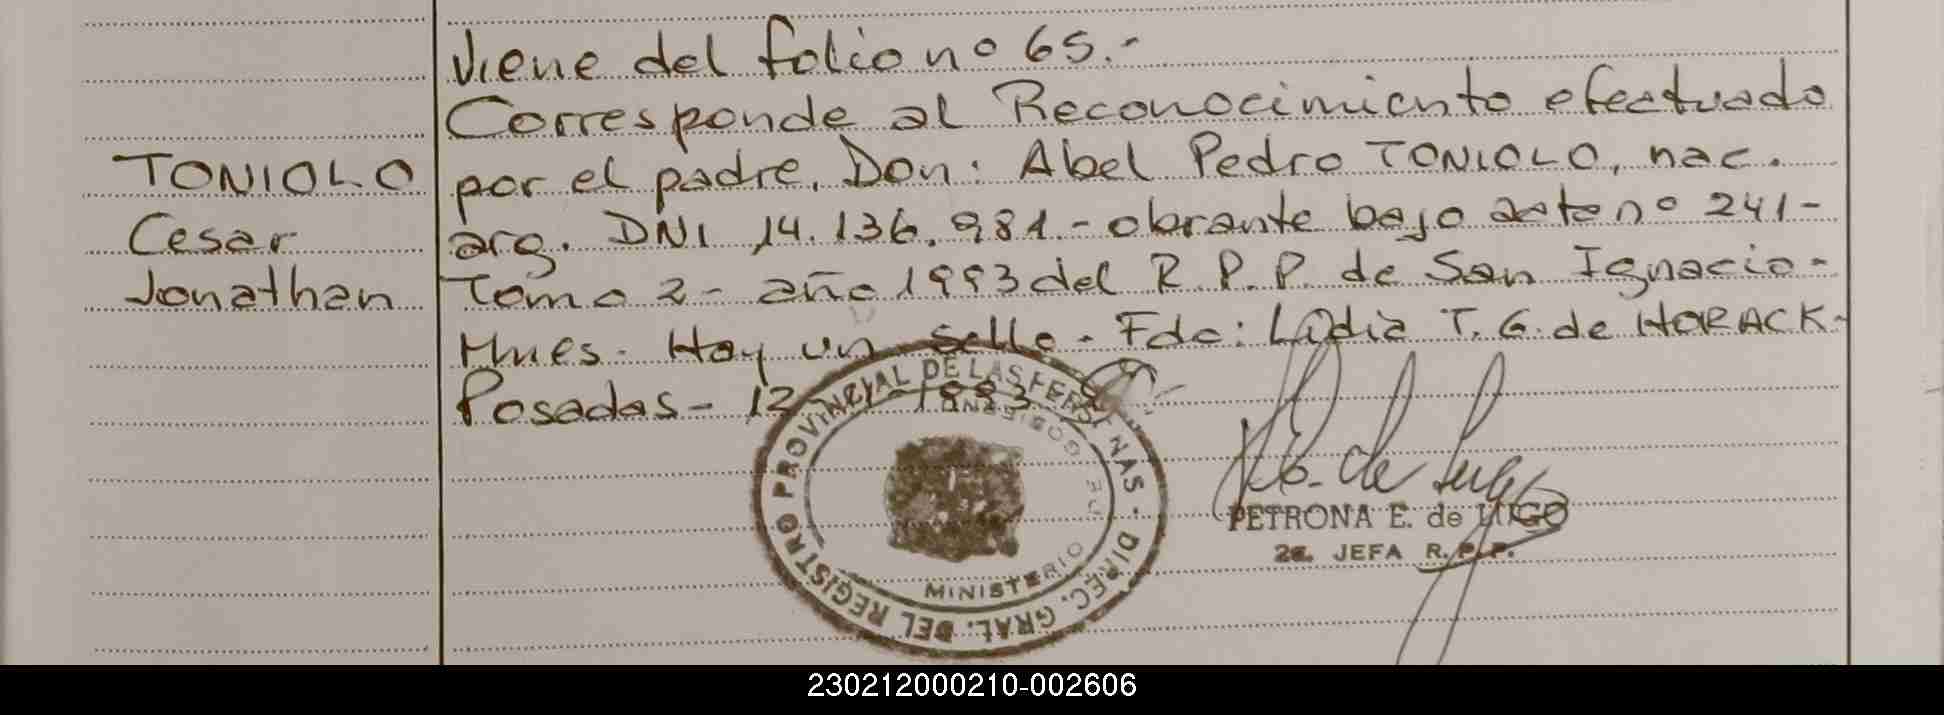 Viene del folio nº 65.-
Corresponde al Reconocimiento efectuado
TONIOLO
por el padre, Don: Abel Pedro TONIOLO, nac.
Cesar
arg. DNI 14.136.981.- obrante bajo acta nº 241-
Jonathan
Tomo 2- año 1993 del R.P.P. de San Ignacio-
Mnes. Hay un sello. Fdo: Lidia T. G. de HORACK-
Posadas- 12 1993
REGISTRO PROVINCIAL DE LAS PERSONAS - DIREC. GRAL. DEL
MINISTERIO DE GOBIERNO
PETRONA E. de LUGO
2a. JEFA R.P.P.
230212000210-002606